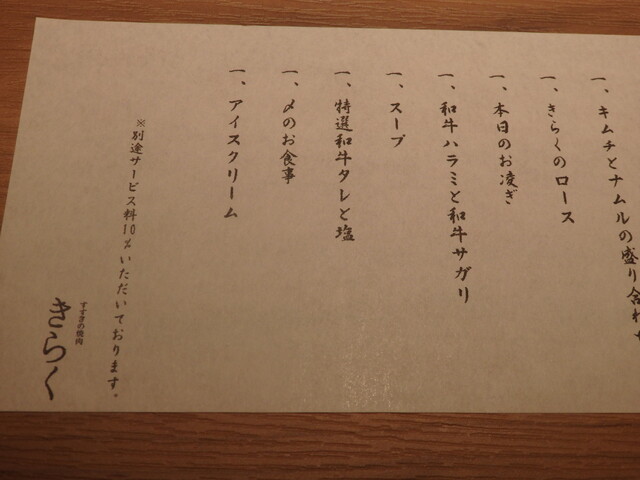 一、キムチとナムルの盛り合わせ
一、きらくのロース
一、本日のお凌ぎ
一、和牛ハラミと和牛サガリ
一、スープ
一、特選和牛タレと塩
一、〆のお食事
一、アイスクリーム
※別途サービス料10%いただいております。
すすきの焼肉
きらく